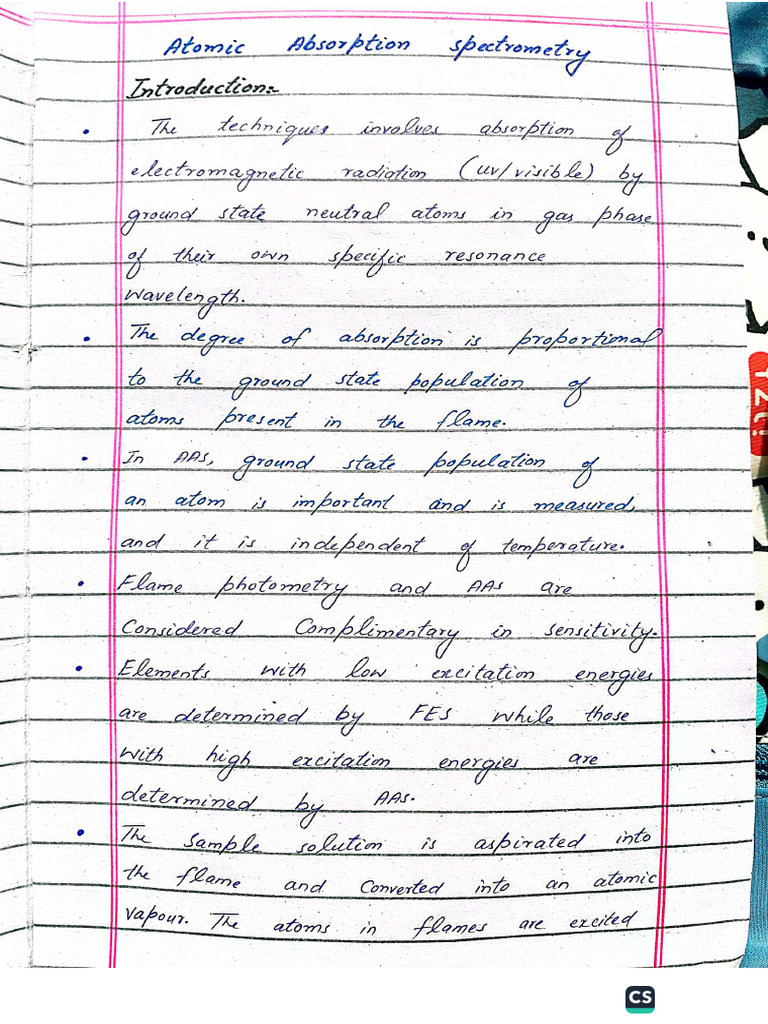 Atomic Absorption spectrometry
Introduction:-
• The techniques involves absorption of
electromagnetic radiation (uv/visible) by
ground state neutral atoms in gas phase
of their own specific resonance
wavelength.
• The degree of absorption is proportional
to the ground state population of
atoms present in the flame.
• In AAS, ground state population of
an atom is important and is measured,
and it is independent of temperature.
• Flame photometry and AAS are
Considered Complimentary in sensitivity.
• Elements with low excitation energies
are determined by FES while those
with high excitation energies are
determined by AAS.
• The sample solution is aspirated into
the flame and converted into an atomic
vapour. The atoms in flames are excited
CS